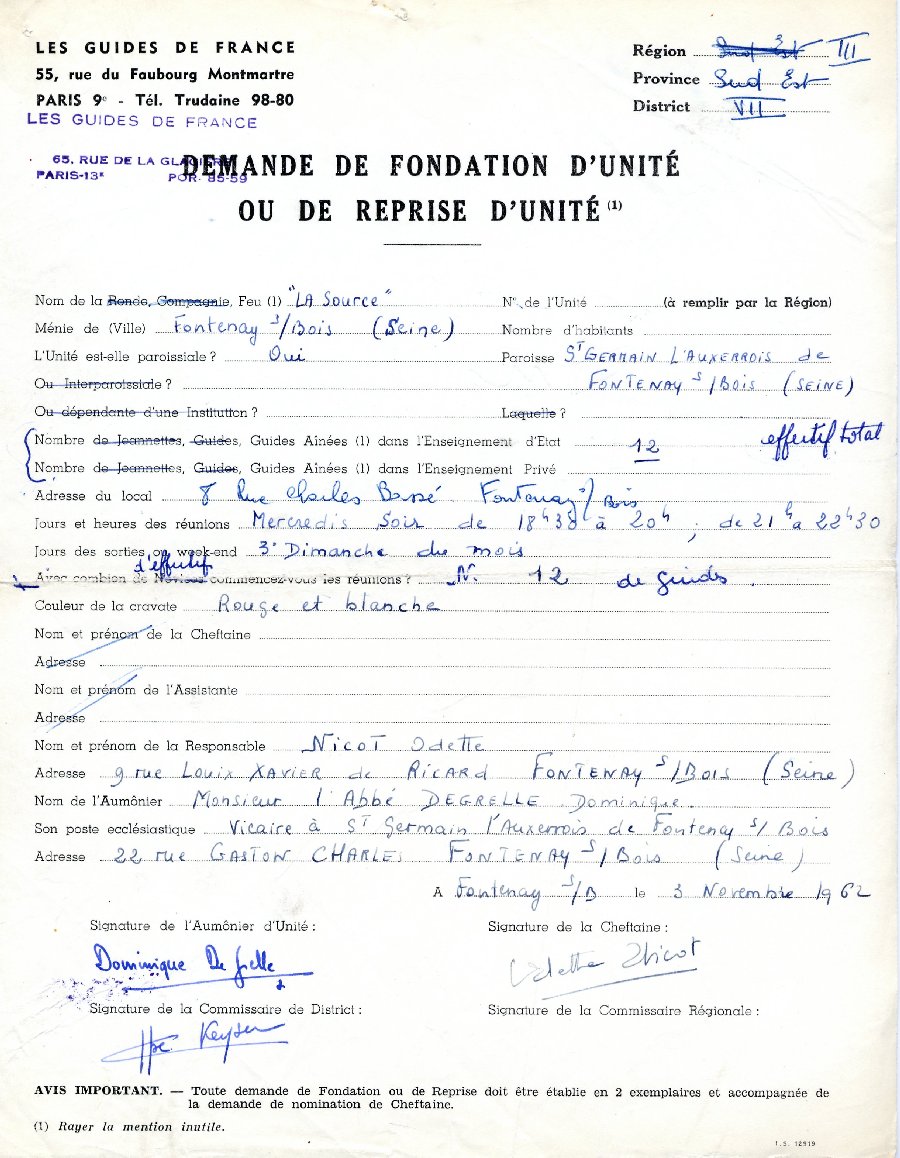 LES GUIDES DE FRANCE
55, rue du Faubourg Montmartre
PARIS 9e - Tél. Trudaine 98-80
LES GUIDES DE FRANCE
65, RUE DE LA GLACIERE
PARIS-13e POR. 85-59
Région Sud Est III
Province Sud Est
District VII
DEMANDE DE FONDATION D'UNITÉ
OU DE REPRISE D'UNITÉ (1)
Nom de la Ronde, Compagnie, Feu (1) "LA Source" N° de l'Unité (à remplir par la Région)
Ménie de (Ville) Fontenay s/Bois (Seine) Nombre d'habitants
L'Unité est-elle paroissiale ? Oui Paroisse St GERMAIN L'AUXERROIS de
Ou Interparoissiale ? FONTENAY s/BOIS (SEINE)
Ou dépendante d'une Institution ? Laquelle ?
Nombre de Jeannettes, Guides, Guides Aînées (1) dans l'Enseignement d'Etat 12 effectif total
Nombre de Jeannettes, Guides, Guides Aînées (1) dans l'Enseignement Privé
Adresse du local 8 Rue Charles Bassé Fontenay s/Bois
Jours et heures des réunions Mercredis Soir de 18h30 à 20h, de 21h à 22h30
Jours des sorties ou week-end 3e Dimanche du mois
d'effectif
Avec combien de Novices commencez-vous les réunions ? N. 12 de guides.
Couleur de la cravate Rouge et blanche
Nom et prénom de la Cheftaine
Adresse
Nom et prénom de l'Assistante
Adresse
Nom et prénom de la Responsable NICOT Odette
Adresse 9 rue Louix XAVIER de RICARD FONTENAY s/Bois (Seine)
Nom de l'Aumônier Monsieur l'Abbé DEGRELLE Dominique
Son poste ecclésiastique Vicaire à St Germain l'Auxerrois de Fontenay s/Bois
Adresse 22 rue GASTON CHARLES FONTENAY s/Bois (Seine)
A Fontenay s/B le 3 Novembre 1962
Signature de l'Aumônier d'Unité : Signature de la Cheftaine :
Dominique De Grelle Odette Nicot
Signature de la Commissaire de District : Signature de la Commissaire Régionale :
Keyser
AVIS IMPORTANT. — Toute demande de Fondation ou de Reprise doit être établie en 2 exemplaires et accompagnée de
la demande de nomination de Cheftaine.
(1) Rayer la mention inutile.
I.S. 12919